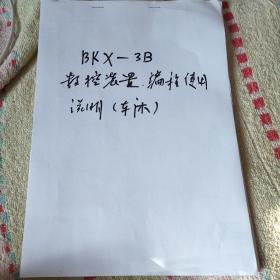 BKX-3B
数控装置.编程使用
说明(车床)